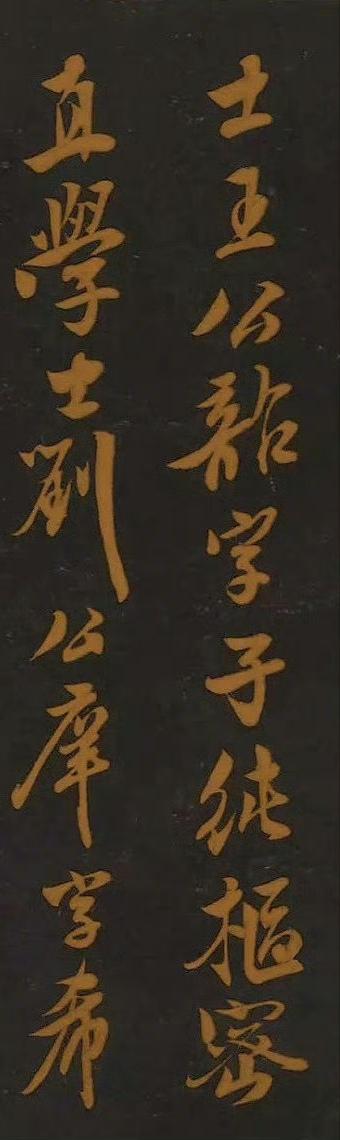 士王公韶字子純樞密
直學士劉公庠字希